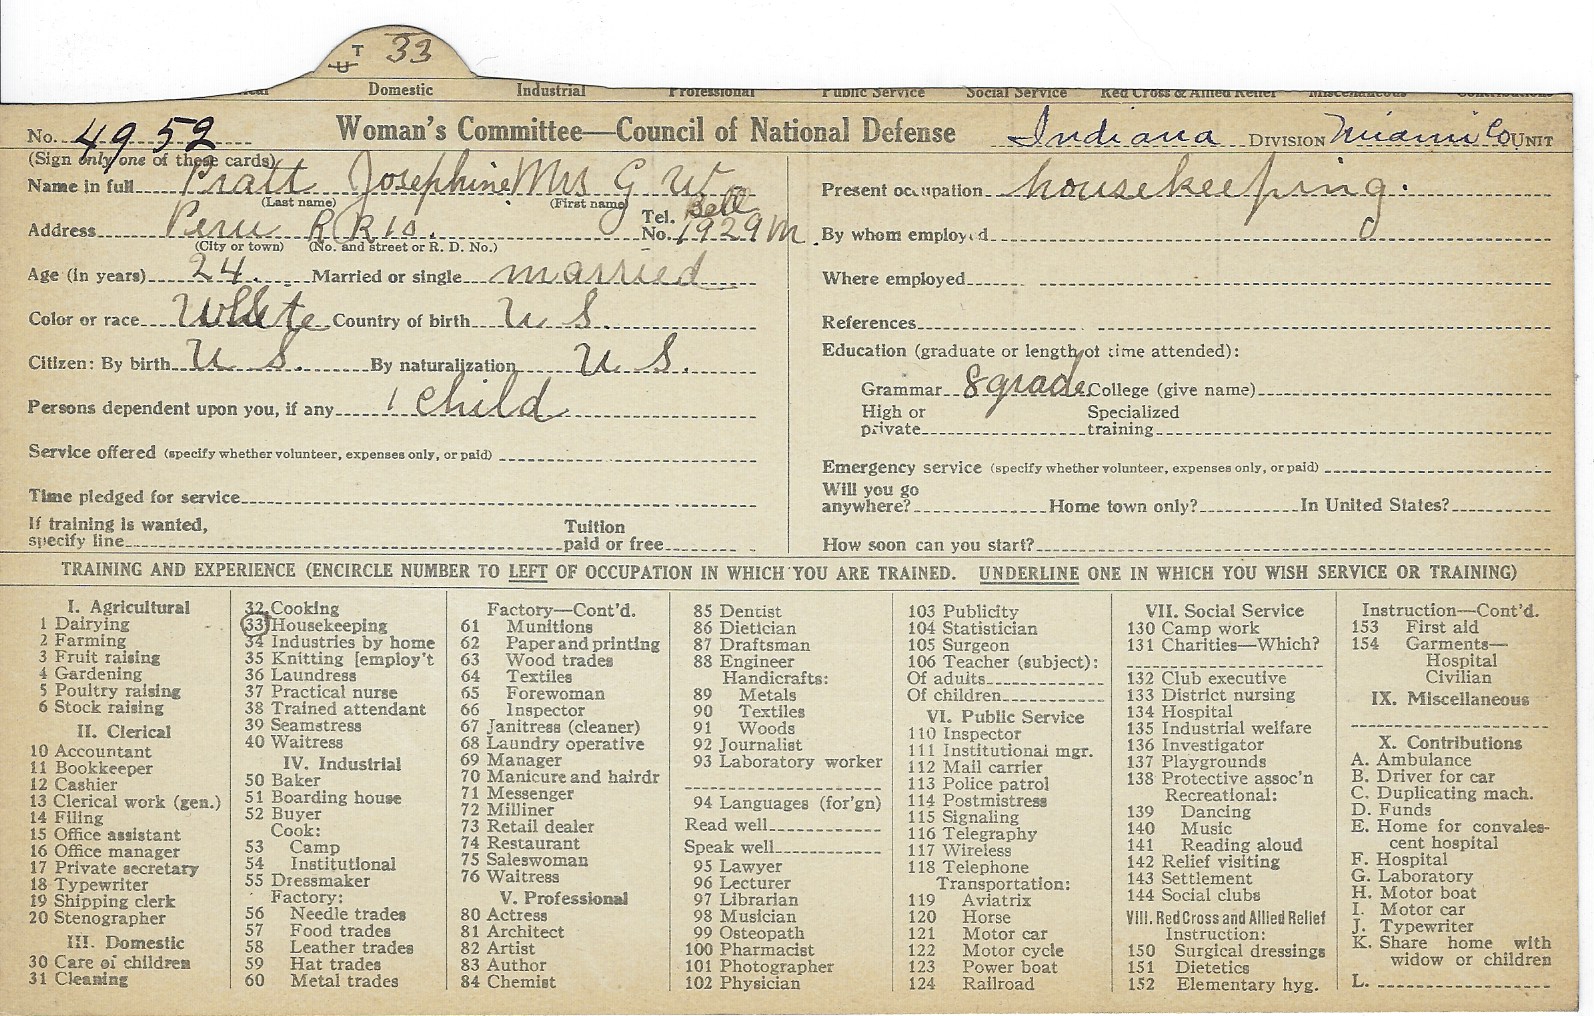 T 33
U
Domestic Industrial Professional Public Service Social Service Red Cross & Allied Relief Miscellaneous Contributions
No. 4952 Woman's Committee—Council of National Defense Indiana DIVISION Miami Co UNIT
(Sign only one of these cards)
Name in full Pratt Josephine Mrs G W
(Last name) (First name)
Address Peru R R 10. Tel. No. Bell 1929 M.
(City or town) (No. and street or R. D. No.)
Age (in years) 24. Married or single married
Color or race White Country of birth U S.
Citizen: By birth U S. By naturalization U S.
Persons dependent upon you, if any 1 child
Service offered (specify whether volunteer, expenses only, or paid)
Time pledged for service
If training is wanted,
specify line Tuition paid or free
Present occupation housekeeping.
By whom employed
Where employed
References
Education (graduate or length of time attended):
Grammar 8 grade College (give name)
High or private Specialized training
Emergency service (specify whether volunteer, expenses only, or paid)
Will you go
anywhere? Home town only? In United States?
How soon can you start?
TRAINING AND EXPERIENCE (ENCIRCLE NUMBER TO LEFT OF OCCUPATION IN WHICH YOU ARE TRAINED. UNDERLINE ONE IN WHICH YOU WISH SERVICE OR TRAINING)
I. Agricultural
1 Dairying
2 Farming
3 Fruit raising
4 Gardening
5 Poultry raising
6 Stock raising
II. Clerical
10 Accountant
11 Bookkeeper
12 Cashier
13 Clerical work (gen.)
14 Filing
15 Office assistant
16 Office manager
17 Private secretary
18 Typewriter
19 Shipping clerk
20 Stenographer
III. Domestic
30 Care of children
31 Cleaning
32 Cooking
33 Housekeeping
34 Industries by home
35 Knitting [employ't
36 Laundress
37 Practical nurse
38 Trained attendant
39 Seamstress
40 Waitress
IV. Industrial
50 Baker
51 Boarding house
52 Buyer
Cook:
53 Camp
54 Institutional
55 Dressmaker
Factory:
56 Needle trades
57 Food trades
58 Leather trades
59 Hat trades
60 Metal trades
Factory—Cont'd.
61 Munitions
62 Paper and printing
63 Wood trades
64 Textiles
65 Forewoman
66 Inspector
67 Janitress (cleaner)
68 Laundry operative
69 Manager
70 Manicure and hairdr
71 Messenger
72 Milliner
73 Retail dealer
74 Restaurant
75 Saleswoman
76 Waitress
V. Professional
80 Actress
81 Architect
82 Artist
83 Author
84 Chemist
85 Dentist
86 Dietician
87 Draftsman
88 Engineer
Handicrafts:
89 Metals
90 Textiles
91 Woods
92 Journalist
93 Laboratory worker
94 Languages (for'gn)
Read well
Speak well
95 Lawyer
96 Lecturer
97 Librarian
98 Musician
99 Osteopath
100 Pharmacist
101 Photographer
102 Physician
103 Publicity
104 Statistician
105 Surgeon
106 Teacher (subject):
Of adults
Of children
VI. Public Service
110 Inspector
111 Institutional mgr.
112 Mail carrier
113 Police patrol
114 Postmistress
115 Signaling
116 Telegraphy
117 Wireless
118 Telephone
Transportation:
119 Aviatrix
120 Horse
121 Motor car
122 Motor cycle
123 Power boat
124 Railroad
VII. Social Service
130 Camp work
131 Charities—Which?
132 Club executive
133 District nursing
134 Hospital
135 Industrial welfare
136 Investigator
137 Playgrounds
138 Protective assoc'n
Recreational:
139 Dancing
140 Music
141 Reading aloud
142 Relief visiting
143 Settlement
144 Social clubs
VIII. Red Cross and Allied Relief
Instruction:
150 Surgical dressings
151 Dietetics
152 Elementary hyg.
Instruction—Cont'd.
153 First aid
154 Garments—
Hospital
Civilian
IX. Miscellaneous
X. Contributions
A. Ambulance
B. Driver for car
C. Duplicating mach.
D. Funds
E. Home for convales-
cent hospital
F. Hospital
G. Laboratory
H. Motor boat
I. Motor car
J. Typewriter
K. Share home with
widow or children
L.